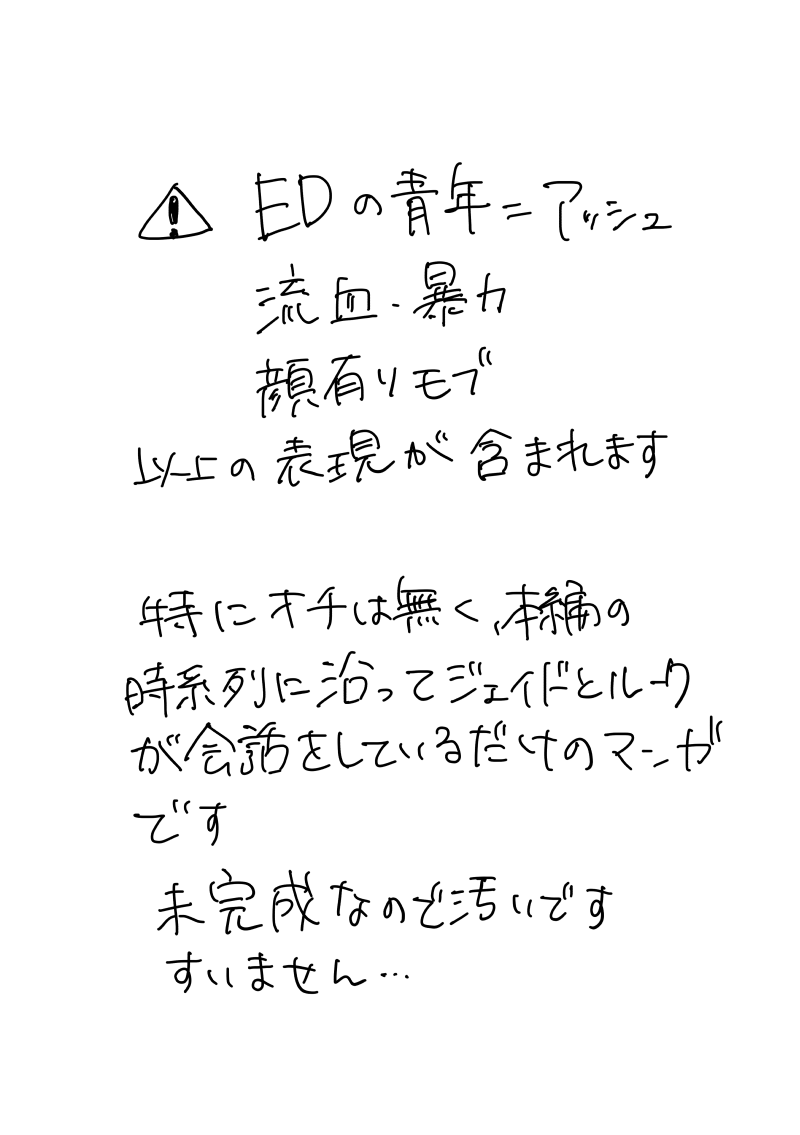 ⚠ EDの青年=アッシュ
流血・暴力
顔有りモブ
以上の表現が含まれます
特にオチは無く、本編の
時系列に沿ってジェイドとルーク
が会話をしているだけのマンガ
です
未完成なので汚いです
すいません…